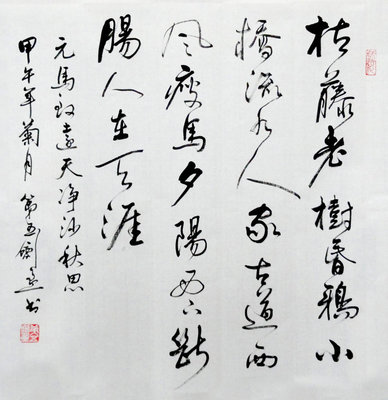 枯藤老樹昏鴉小
橋流水人家古道西
風瘦馬夕陽西下斷
腸人在天涯
元馬致遠天净沙秋思
甲午年菊月第五劍書